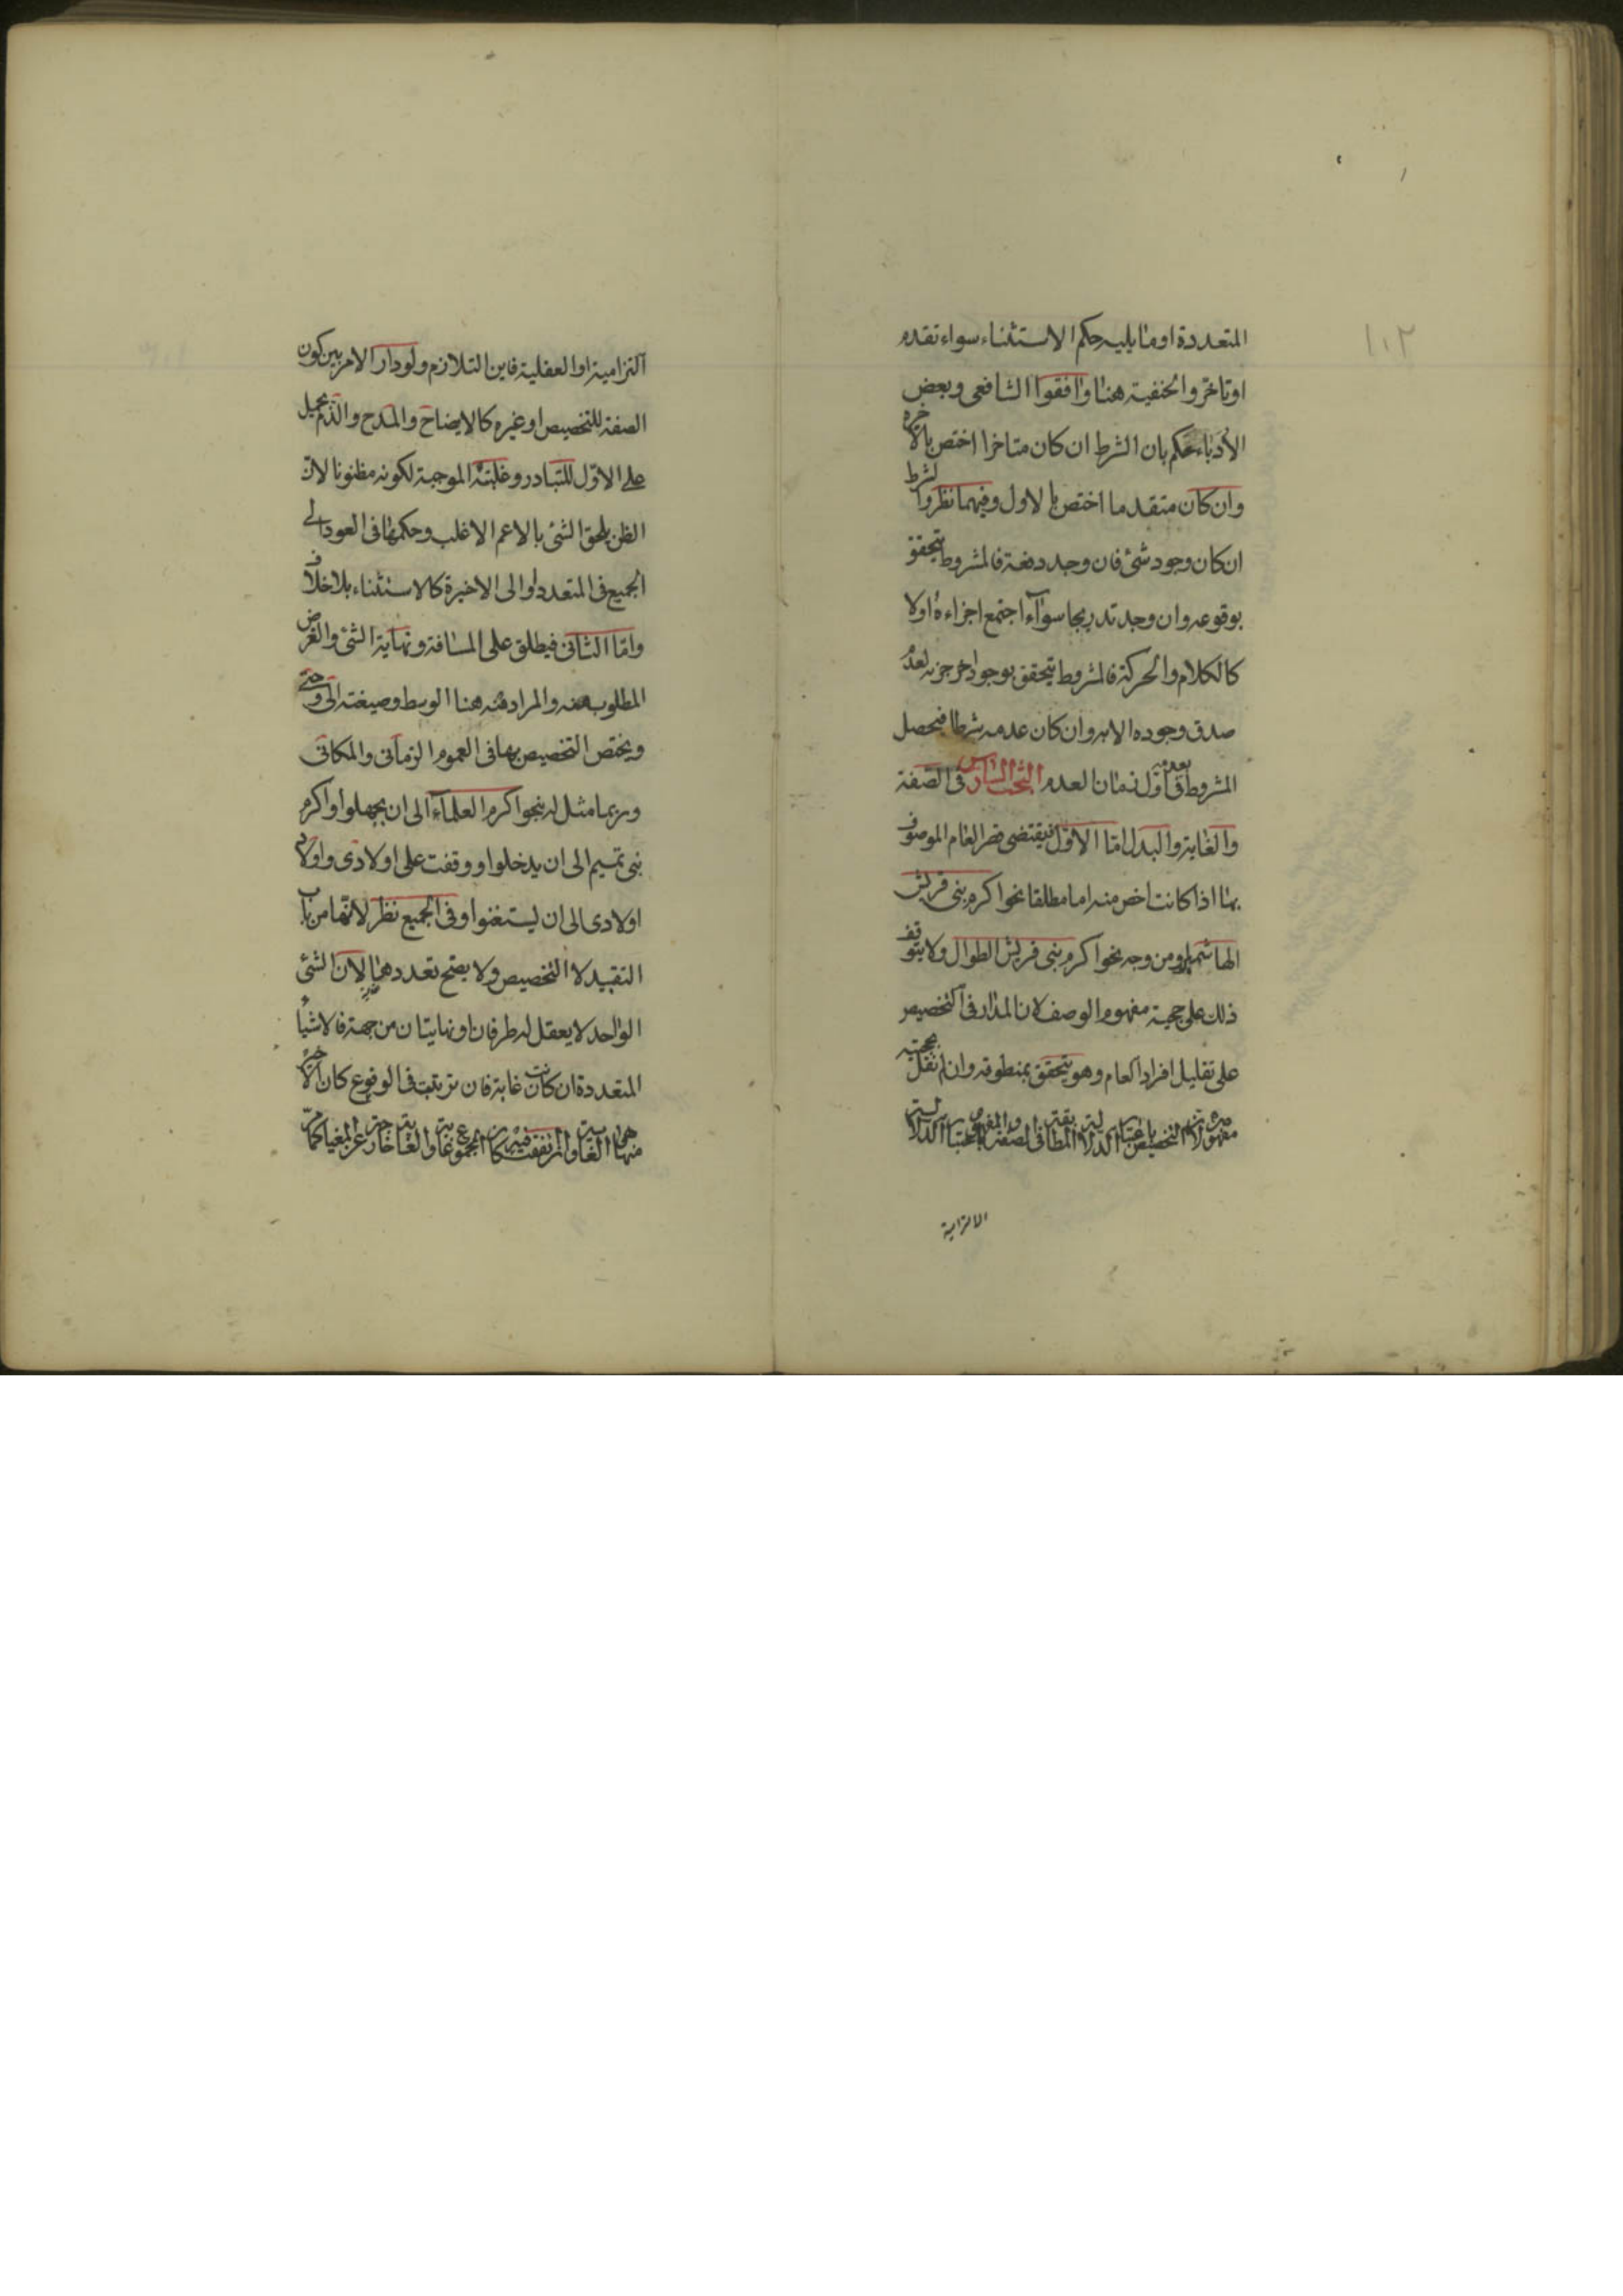 ١٠٢
المتعددة او ما يليه حكم الاستثناء سواء تقدم
او تاخر والحنفية هنا وافقوا الشافعى وبعض
الأدباء حكم بان الشرط ان كان متاخرا اختص بالاخيرة
وان كان متقدما اختص بالاول وفيهما نظر والشرط
ان كان وجود شئ فان وجد دفعة فالمشروط يتحقق
بوقوعه وان وجد تدريجا سواء اجتمع اجزاءه اولا
كالكلام والحركة فالمشروط يتحقق بوجود اخر جزء لعدم
صدق وجوده الا به وان كان عدمه شرطا فيحصل
المشروط فى اول زمان العدم البحث السادس فى الصفة
والغاية والبدل امّا الاوّل فيقتضى قصر العام الموصوف
بها اذا كانت اخص منه اما مطلقا نحو اكرم بنى قريش
الهاشميين او من وجه نحو اكرم بنى قريش الطوال ولا يتوقف
ذلك على حجية مفهوم الوصف لان المدار فى التخصيص
على تقليل افراد العام وهو يتحقق بمنطوقه وان لم نقل بحجية
مفهومه لان التخصيص باعتبار الدلالة المطابقية فى الصفة والمفهوم باعتبار الدلالة
الالتزامية
التزامية او العقلية فاين التلازم ولو دار الامر بين كون
الصفة للتخصيص او غيره كالايضاح والمدح والذم يحمل
على الاوّل للتبادر وغلبته الموجبة لكونه مظنونا لانّ
الظن يلحق الشئ بالاعم الاغلب وحكمها فى العود الى
الجميع فى المتعدد او الى الاخيرة كالاستثناء بلا خلاف
وامّا الثانى فيطلق على المسافة ونهاية الشئ والغرض
المطلوب منه والمراد منه هنا الوسط وصيغته الى وحتى
ويختص التخصيص بها فى العموم الزمانى والمكانى
وربما مثل له بنحو اكرم العلماء الى ان يجهلوا واكرم
بنى تميم الى ان يدخلوا ووقفت على اولادى واولاد
اولادى الى ان يستغنوا وفى الجميع نظر لانّها من باب
التقييد لا التخصيص ولا يصح تعددها لان الشئ
الواحد لا يعقل له طرفان او نهايتان من جهة فالاشياء
المتعددة ان كانت غاية فان ترتبت فى الوقوع كان الاخير
منها هى الغاية وان لم تتفق فيه كان المجموع غاية والغاية خارجة عن المغيا كما مرّ